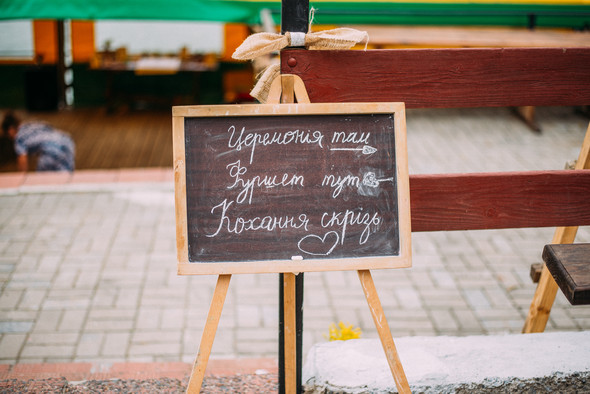 Церемонія там
Фуршет тут
Кохання скрізь